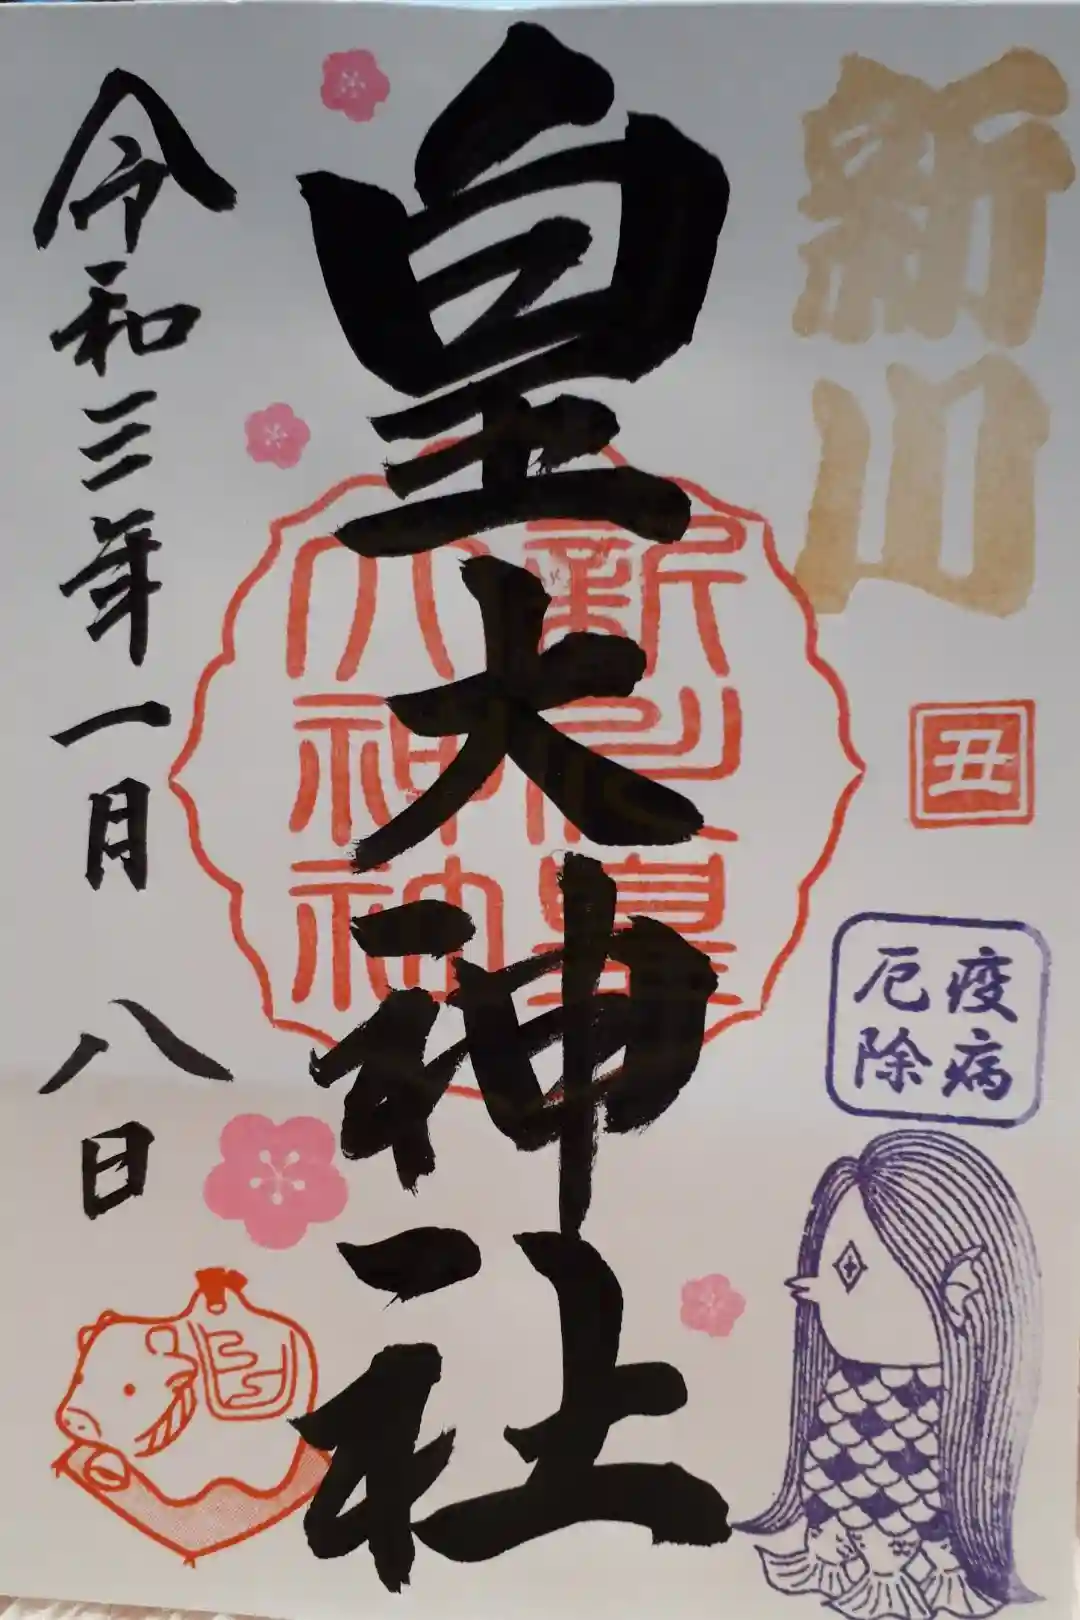 新川
丑
疫病
厄除
皇大神社
新川皇
大神神
令和三年一月八日